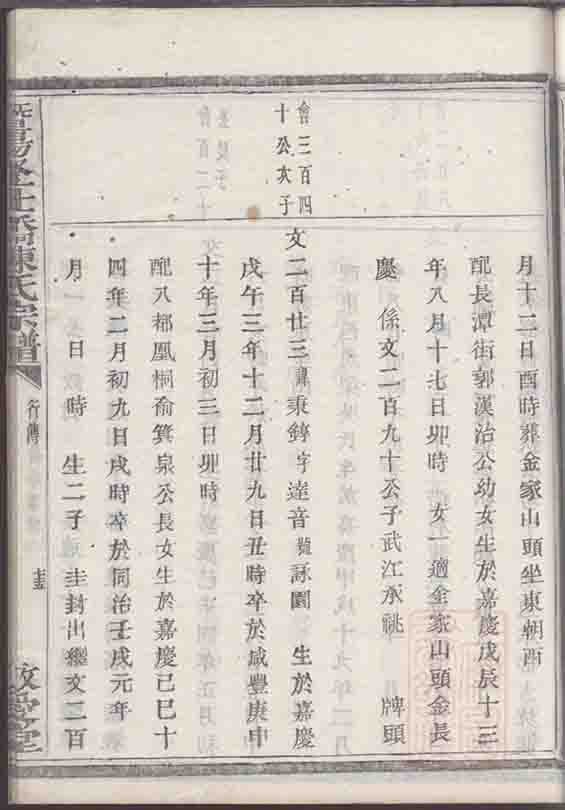 月十二日酉時葬金家山頭坐東朝西
配長潭街郭漢治公幼女生於嘉慶戊辰十三
年八月十七日卯時　女一適金家山頭金長
慶　係文二百九十公子武江承祧　牌頭
會三百四
十公亥子
文二百廿三諱秉錞字達音號詠園　生於嘉慶
戊午三年十二月廿九日丑時卒於咸豐庚申
十年三月初三日卯時
配八都凰桐俞箕泉公長女生於嘉慶己巳十
四年二月初九日戌時卒於同治壬戌元年
月　日　時　生二子　圭封出繼文二百
陳氏宗譜
行傳